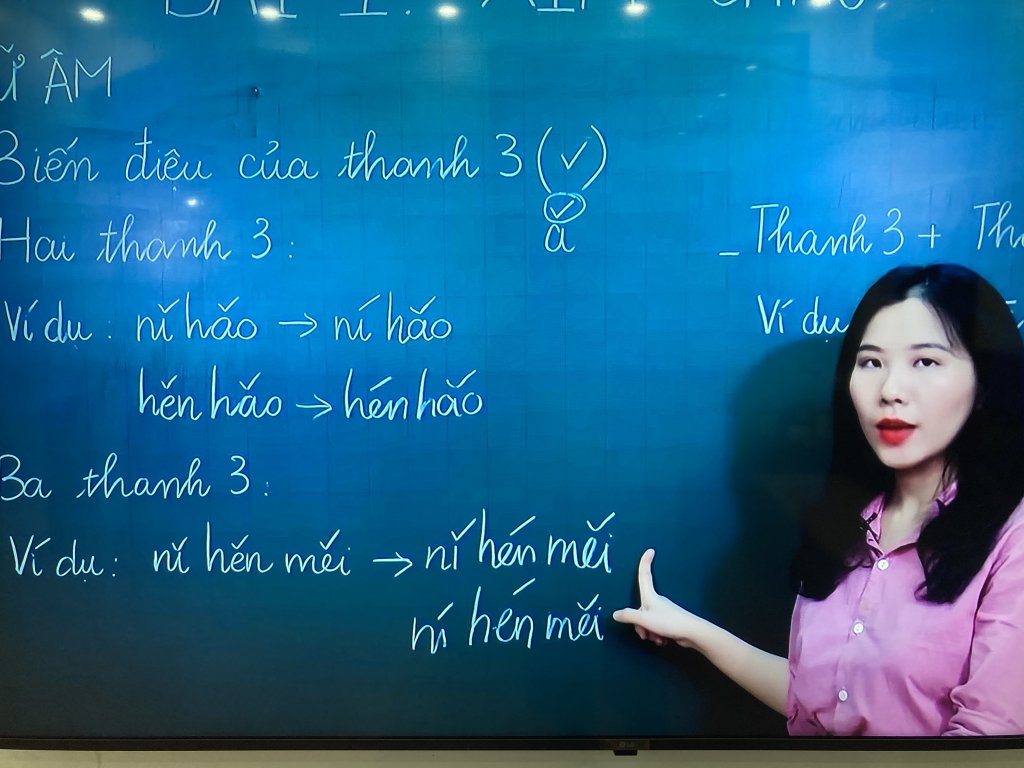 BÀI 1:
ỮÂM
Biến điệu của thanh 3 (ˇ)
ǎ
Hai thanh 3:
Ví dụ: nǐ hǎo → ní hǎo
hěn hǎo → hén hǎo
Ba thanh 3:
Ví dụ: nǐ hěn měi → nǐ hén měi
ní hén měi
_ Thanh 3 +
Ví dụ
LG